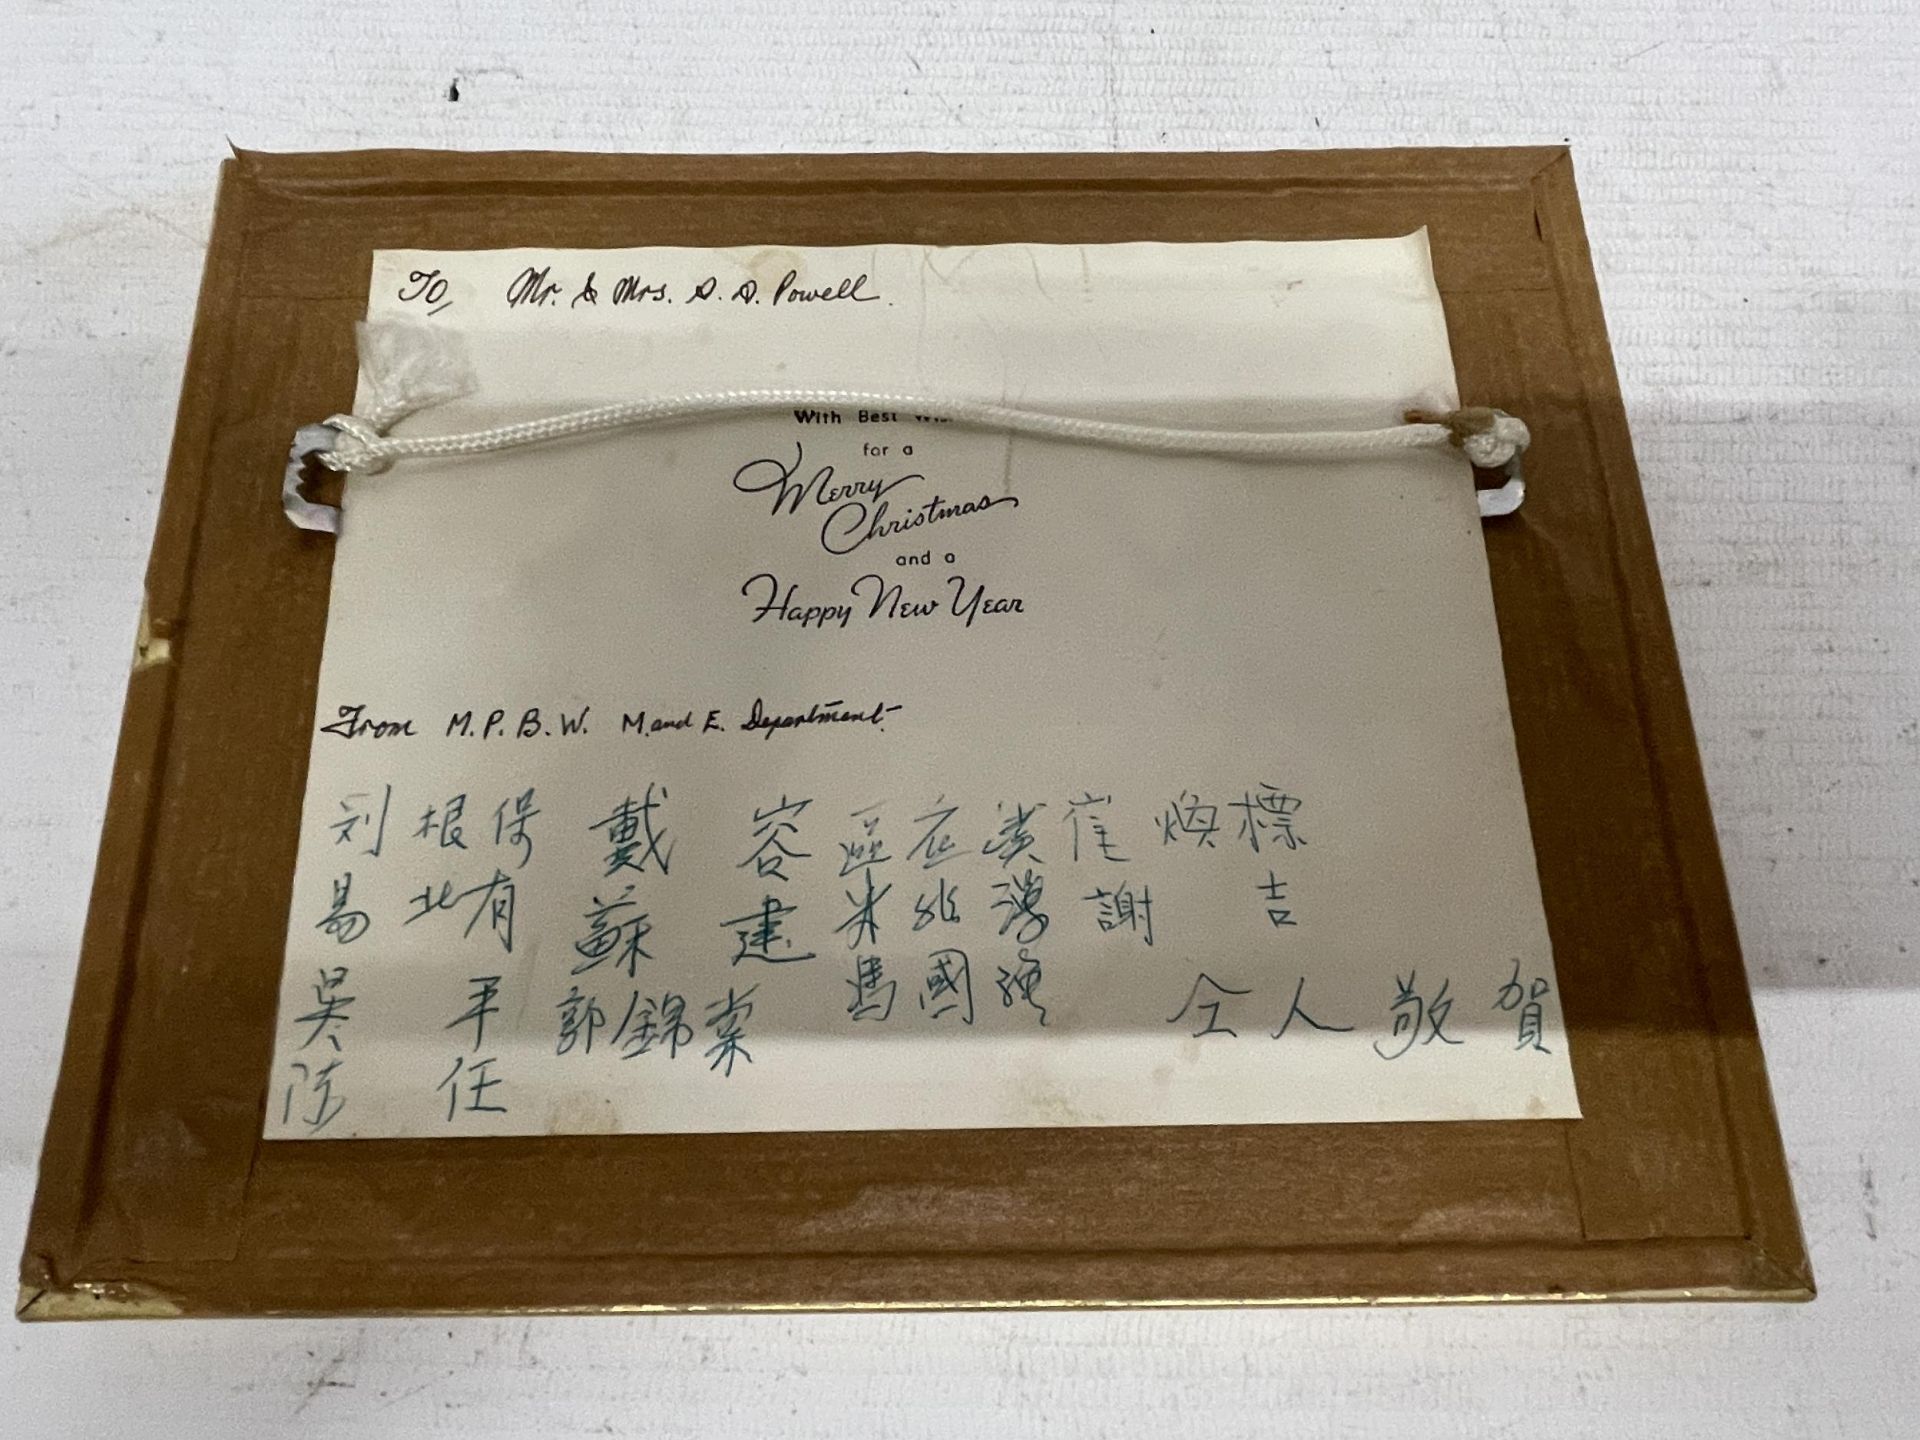 To, Mr. & Mrs. D. D. Powell.
With Best
for a
Merry
Christmas
and a
Happy New Year
From M.P.B.W. M. and E. Department.
刘根保 戴容 區在 崔煥標
易北有 蘇建 米兆 謝吉
吳平 郭錦棠 馮國強 仝人敬賀
陈任